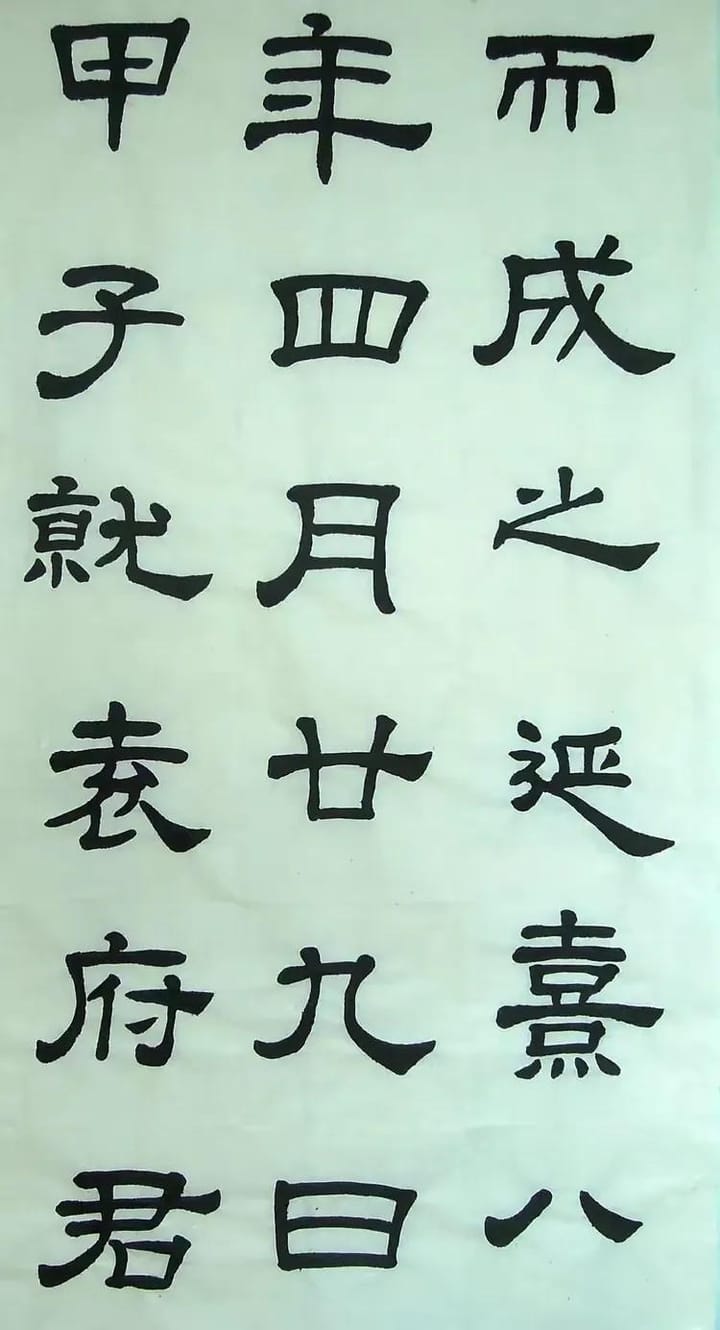 而成之延熹八
年四月廿九日
甲子就袁府君